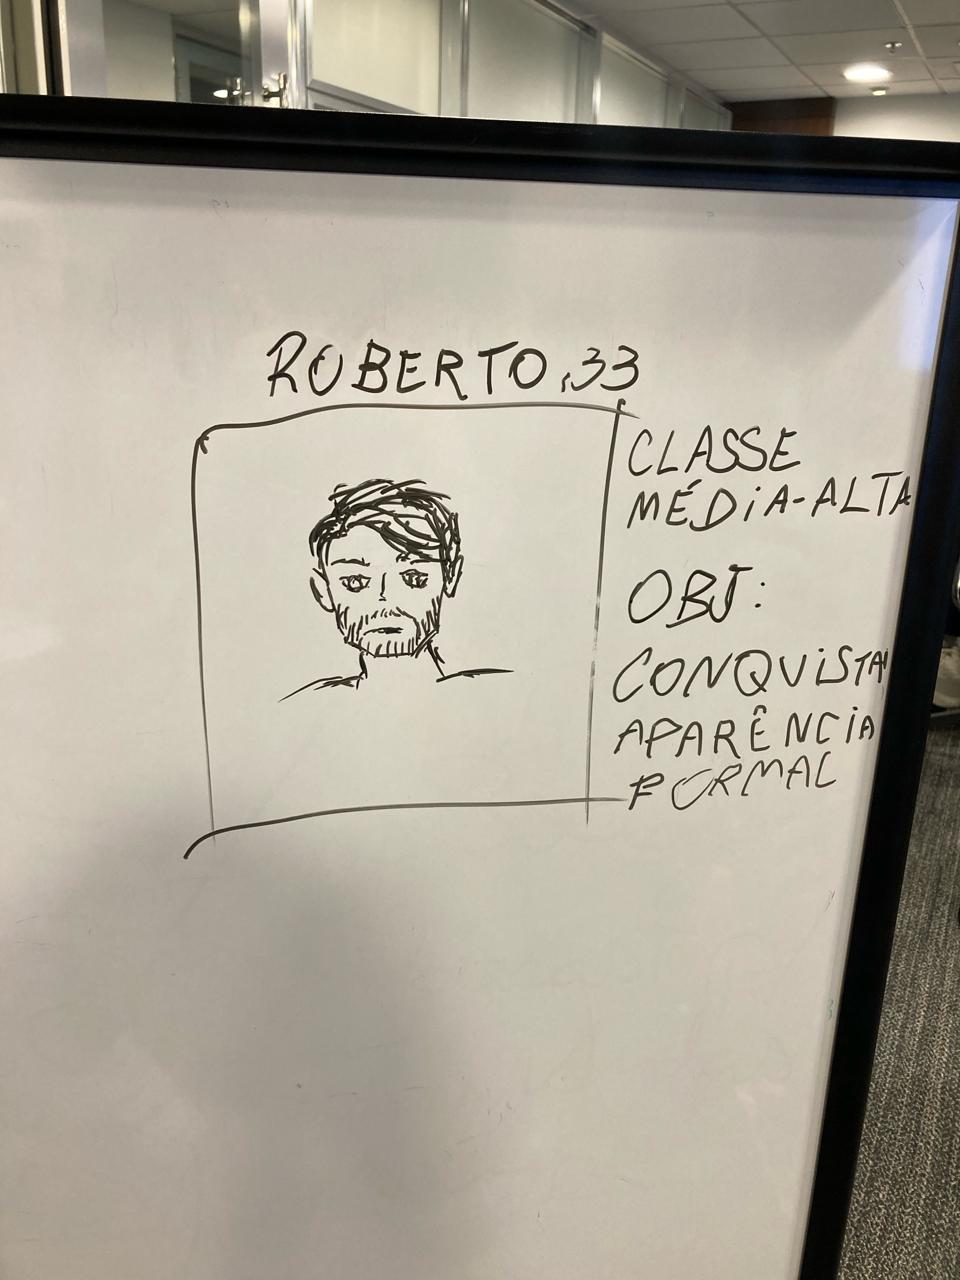 ROBERTO, 33
CLASSE
MÉDIA-ALTA
OBJ:
CONQUISTAR
APARÊNCIA
FORMAL